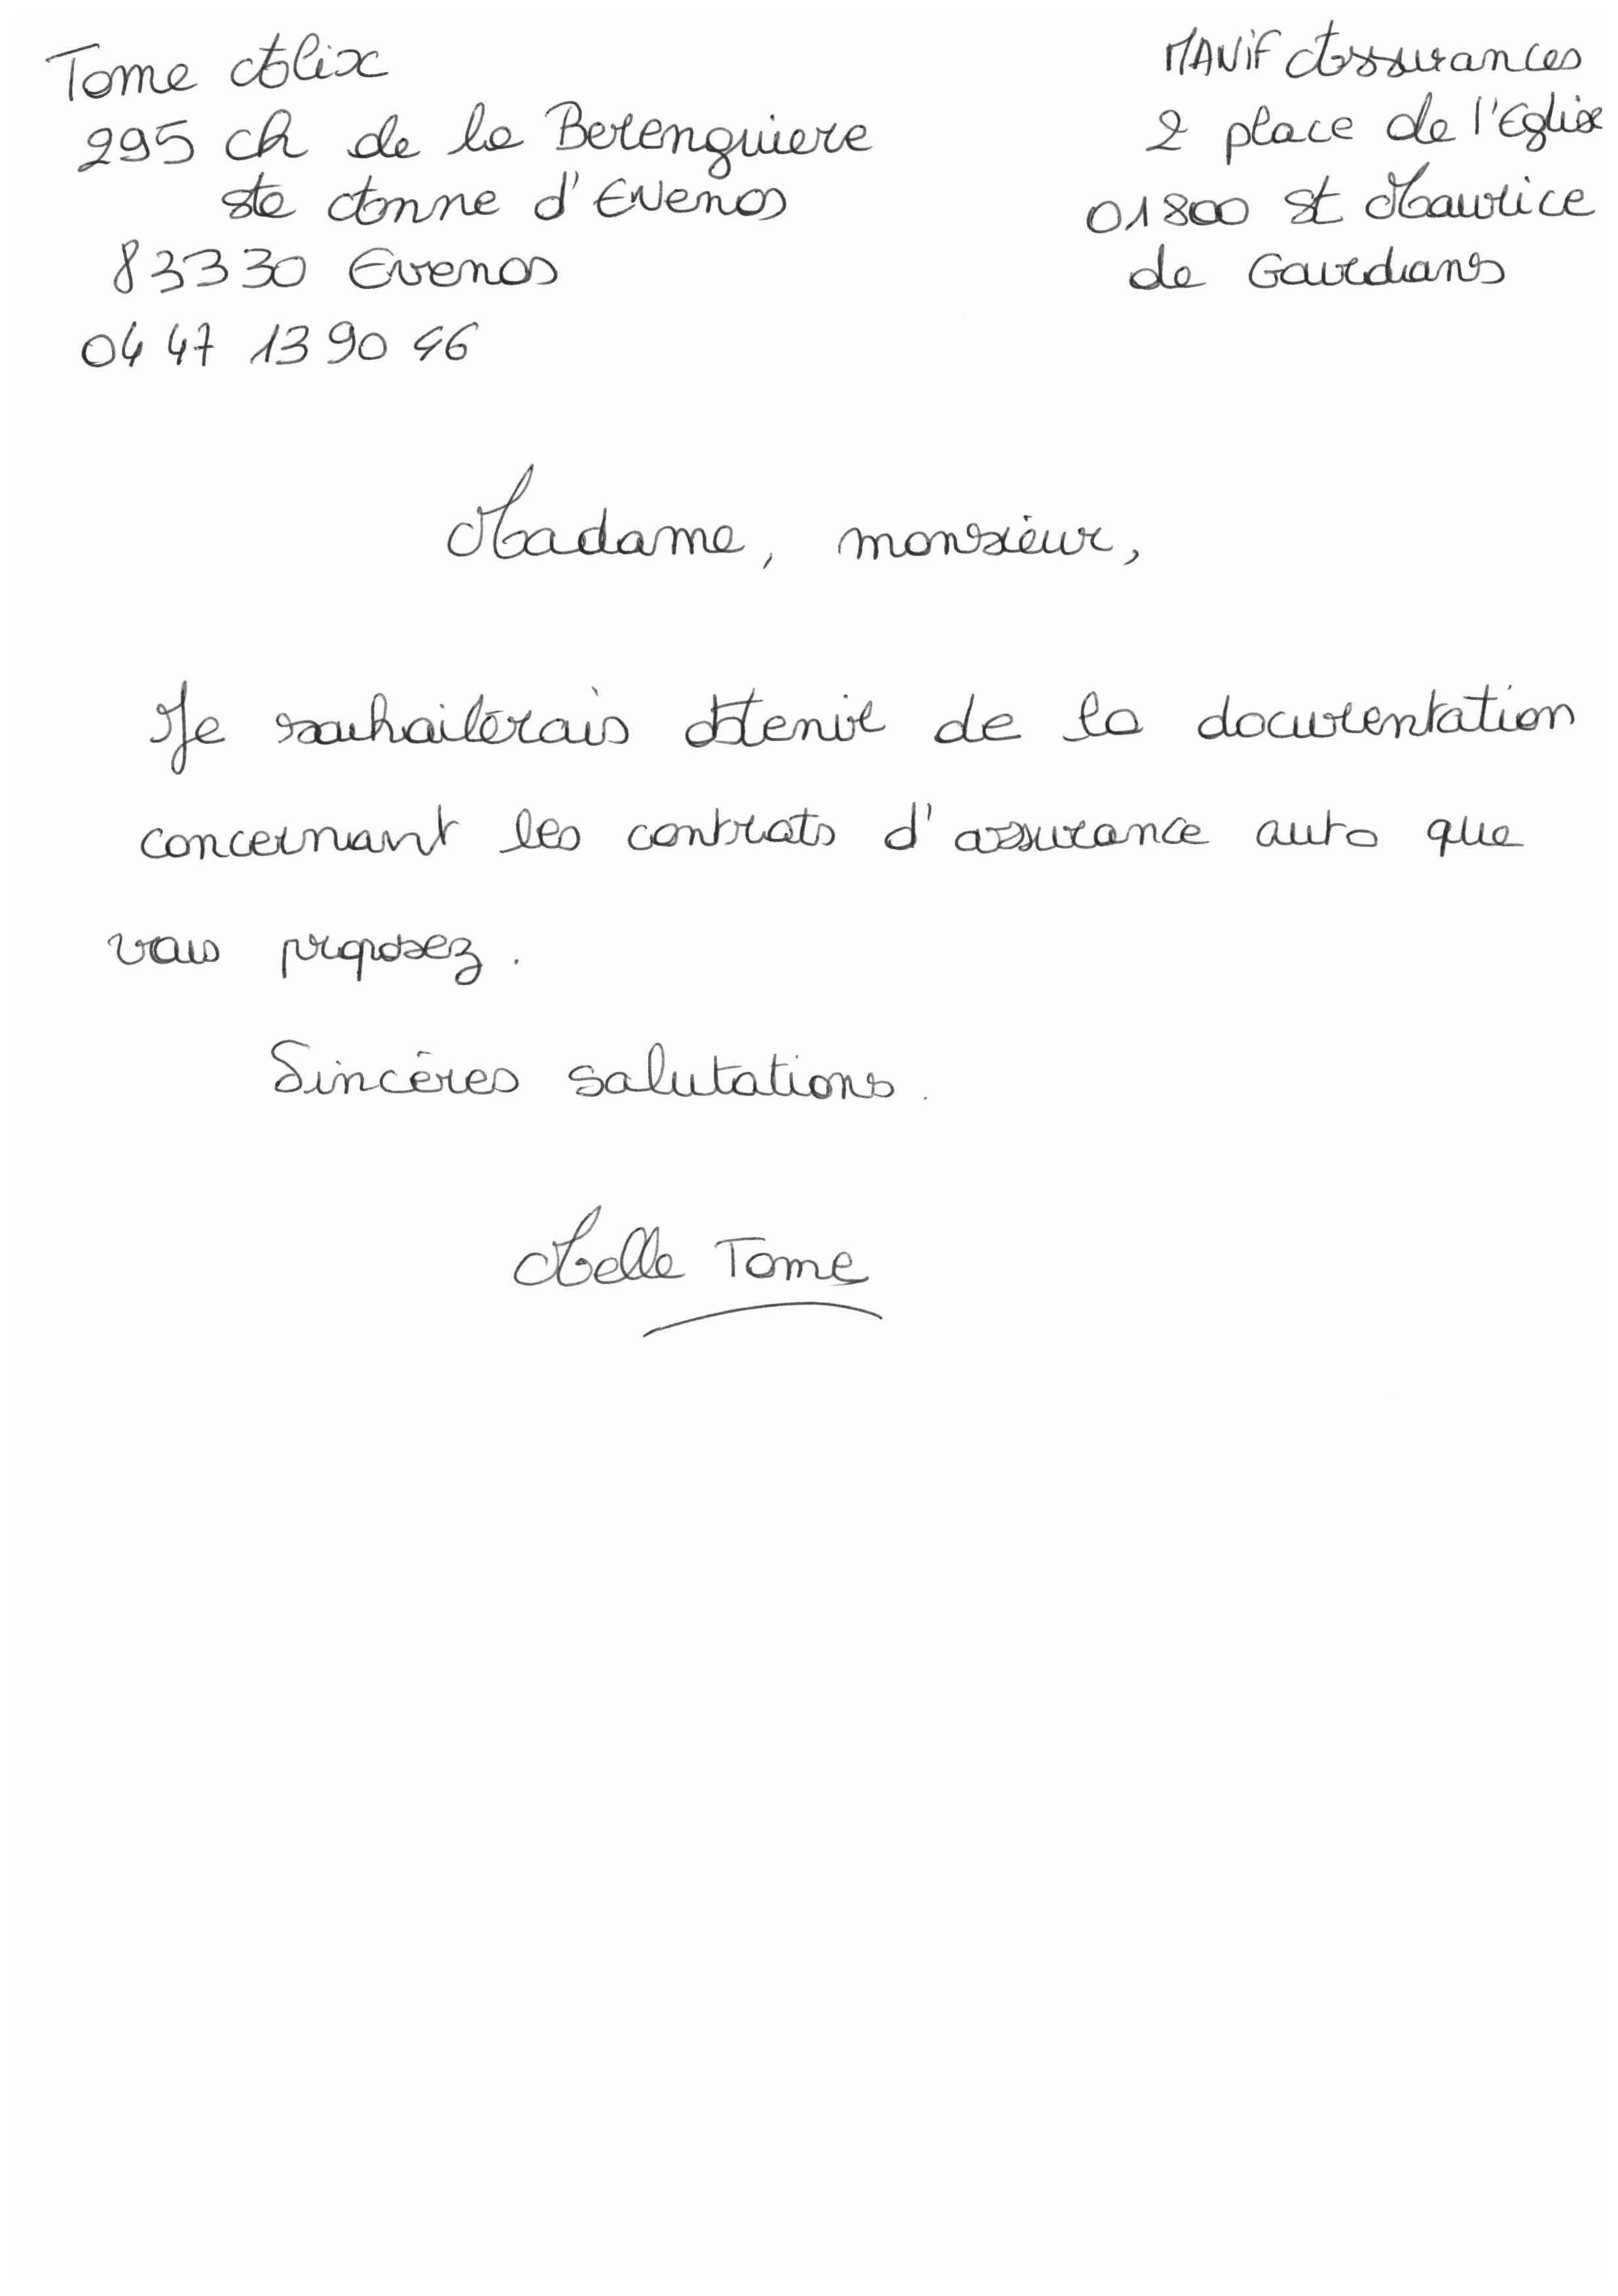 Tome Alix
295 ch de la Berenguiere
ste Anne d'Evenos
83330 Evenos
04 47 13 90 46
MANiF Assurances
2 place de l'Eglise
01800 St Maurice
de Gourdans
Madame, monsieur,
Je souhaiterais obtenir de la documentation
concernant les contrats d'assurance auto que
vous proposez.
Sincères salutations.
Melle Tome